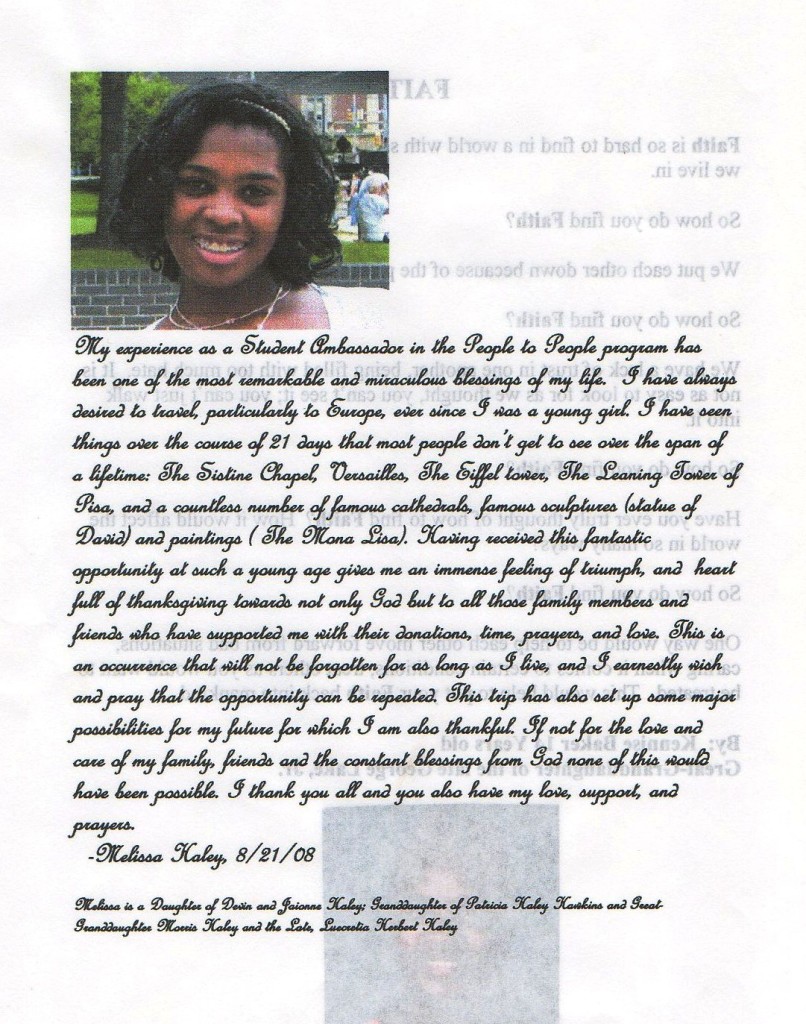 My experience as a Student Ambassador in the People to People program has
been one of the most remarkable and miraculous blessings of my life. I have always
desired to travel, particularly to Europe, ever since I was a young girl. I have seen
things over the course of 21 days that most people don't get to see over the span of
a lifetime: The Sistine Chapel, Versailles, The Eiffel tower, The Leaning Tower of
Pisa, and a countless number of famous cathedrals, famous sculptures (statue of
David) and paintings ( The Mona Lisa). Having received this fantastic
opportunity at such a young age gives me an immense feeling of triumph, and heart
full of thanksgiving towards not only God but to all those family members and
friends who have supported me with their donations, time, prayers, and love. This is
an occurrence that will not be forgotten for as long as I live, and I earnestly wish
and pray that the opportunity can be repeated. This trip has also set up some major
possibilities for my future for which I am also thankful. If not for the love and
care of my family, friends and the constant blessings from God none of this would
have been possible. I thank you all and you also have my love, support, and
prayers.
-Melissa Haley, 8/21/08
Melissa is a Daughter of Devin and Jaionne Haley; Granddaughter of Patricia Haley Hawkins and Great-
Granddaughter Morris Haley and the Late, Herbert Haley